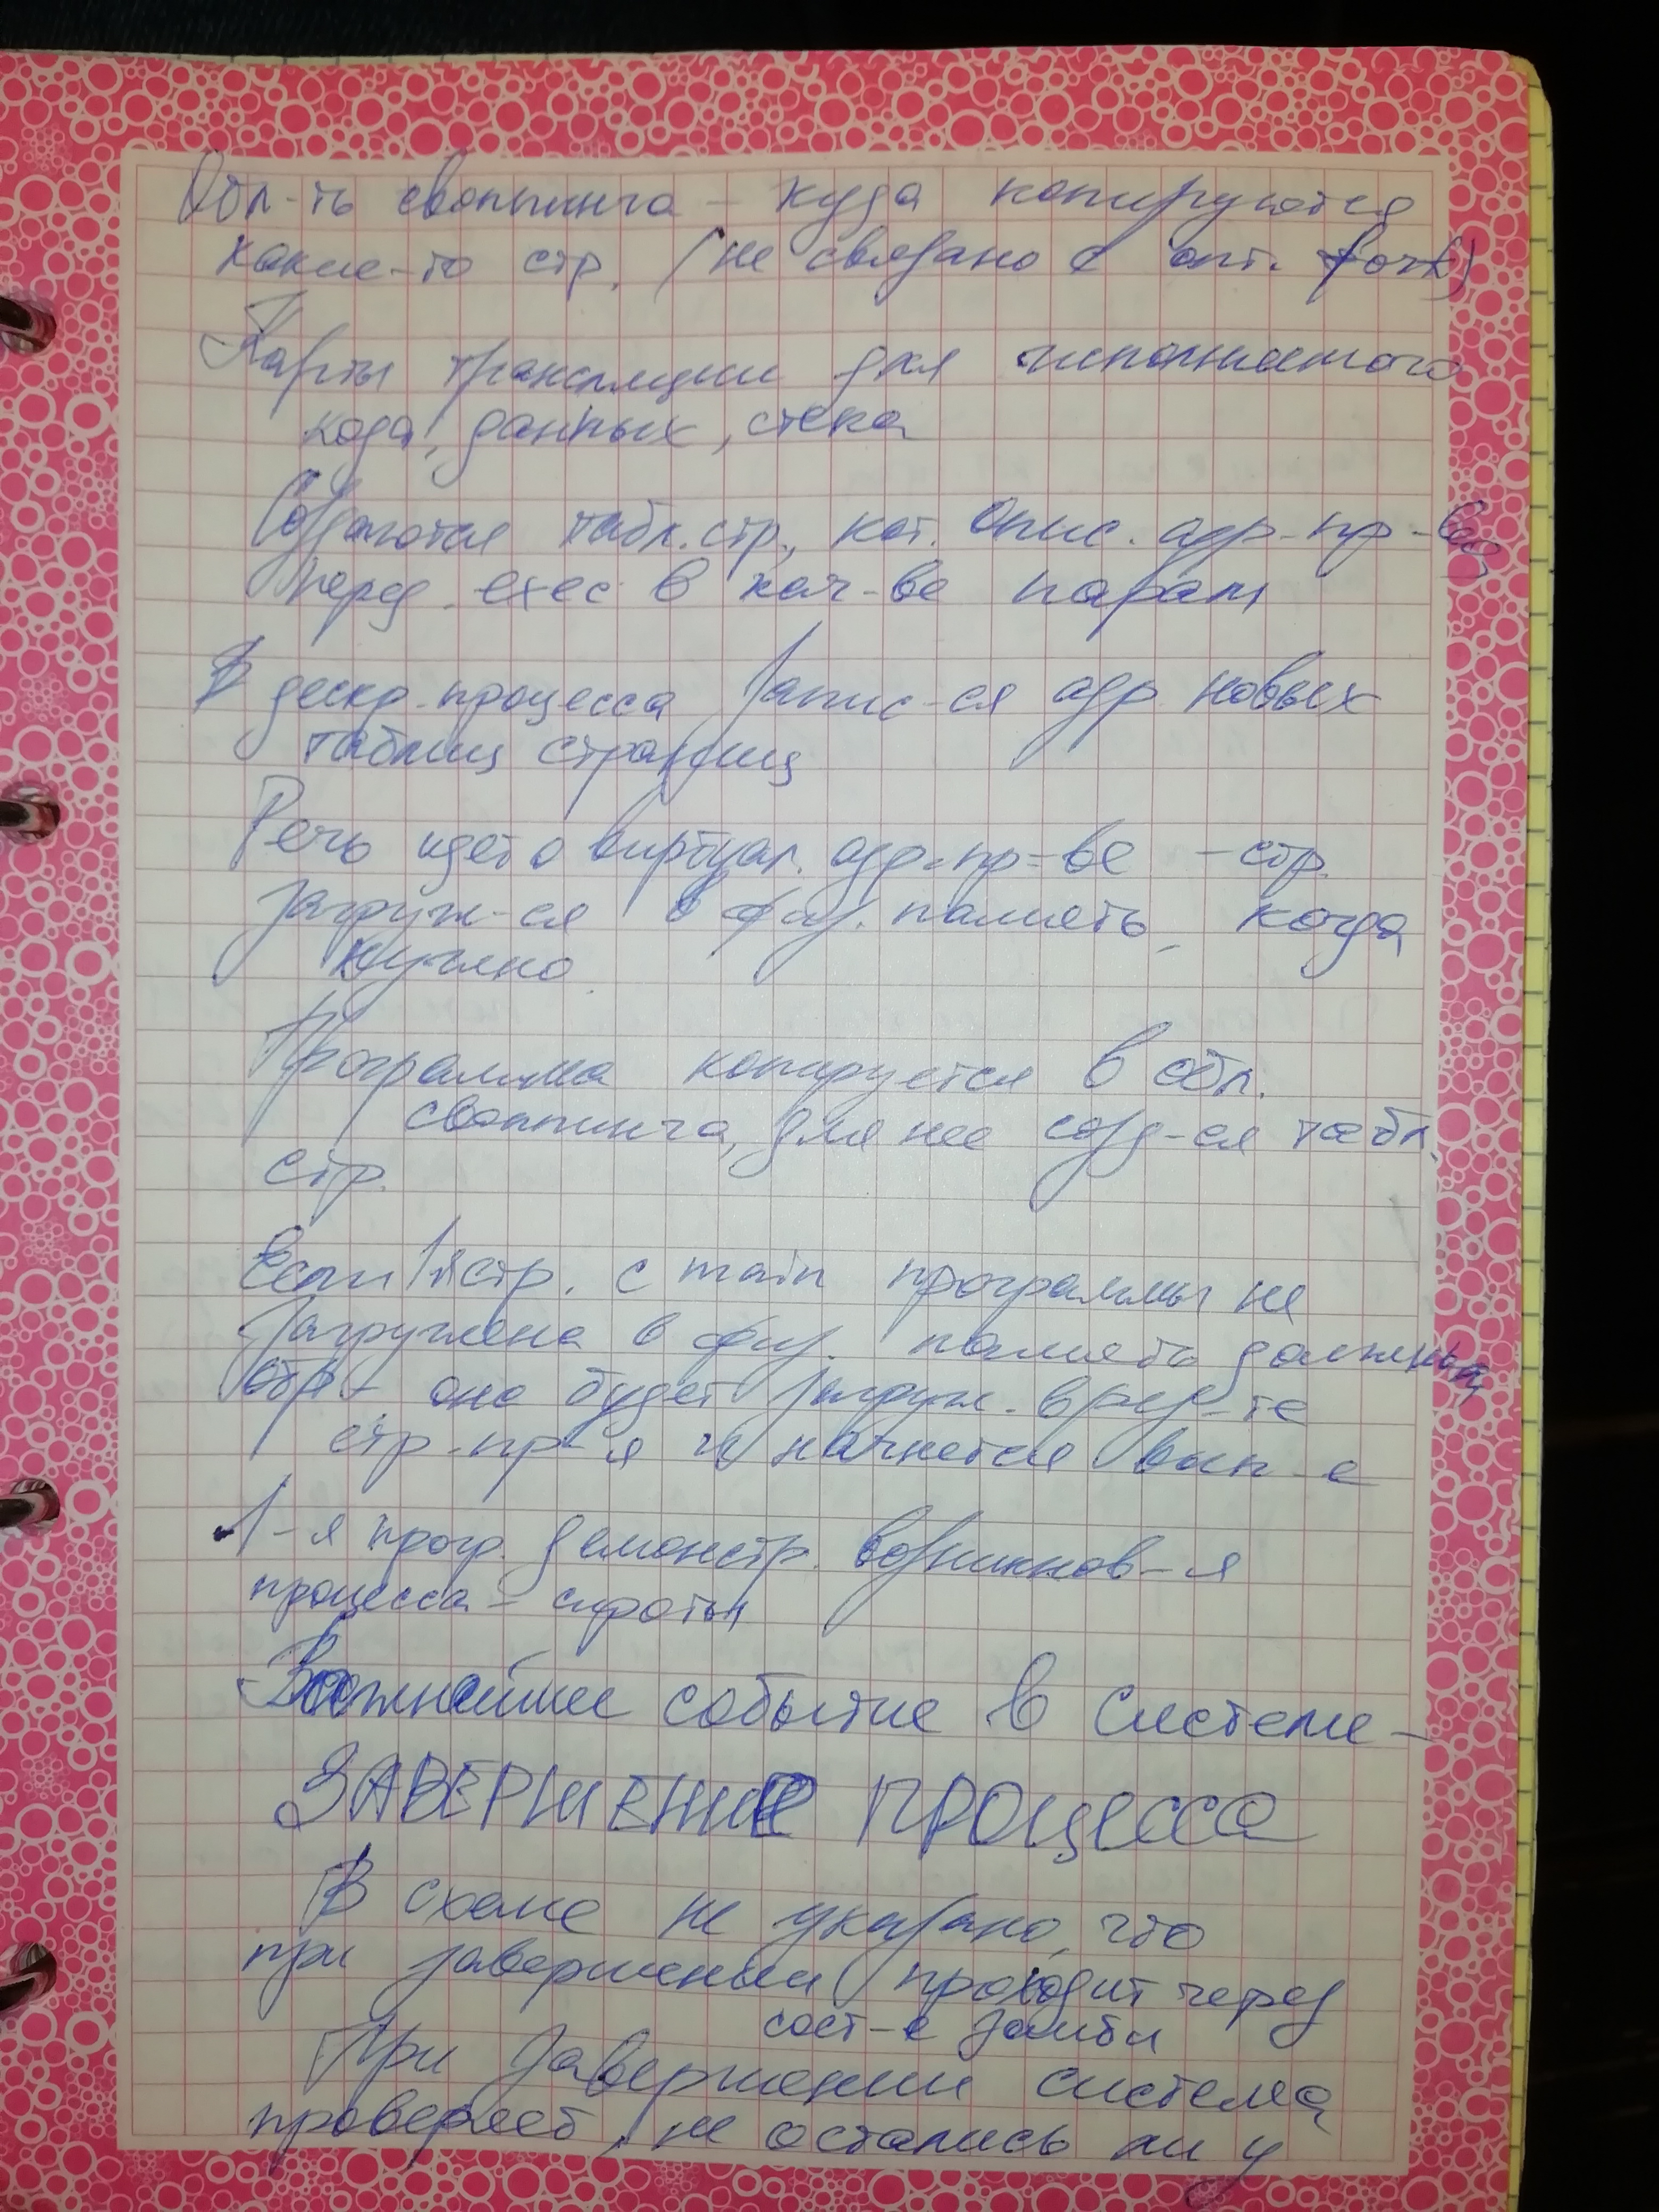 Обл-ть своппинга – куда копируются
какие-то стр. (не связано с опт. fork)
Карты трансляции для исполняемого
кода, данных, стека
Создаются табл. стр., кот. опис. адр. пр-во
перед. exec в кач-ве парам
В дескр. процесса запис-ся адр новых
таблиц страниц
Речь идет о виртуал. адр. пр-ве – стр.
загруж-ся в физ. память, когда
нужно.
Программа копируется в обл.
своппинга, для нее созд-ся табл.
стр.
Если 1я стр. с main программы не
загружена в физ. память
обр – она будет загруж. в рез-те
стр. пр-я и начнется вып-е
1-я прог. демонстр. возникнов-я
процесса-сироты
Важнейшее событие в системе –
ЗАВЕРШЕНИЕ ПРОЦЕССА
В схеме не указано, что
при завершении проходит через
сост-е зомби
При завершении система
проверяет, не остались ли у